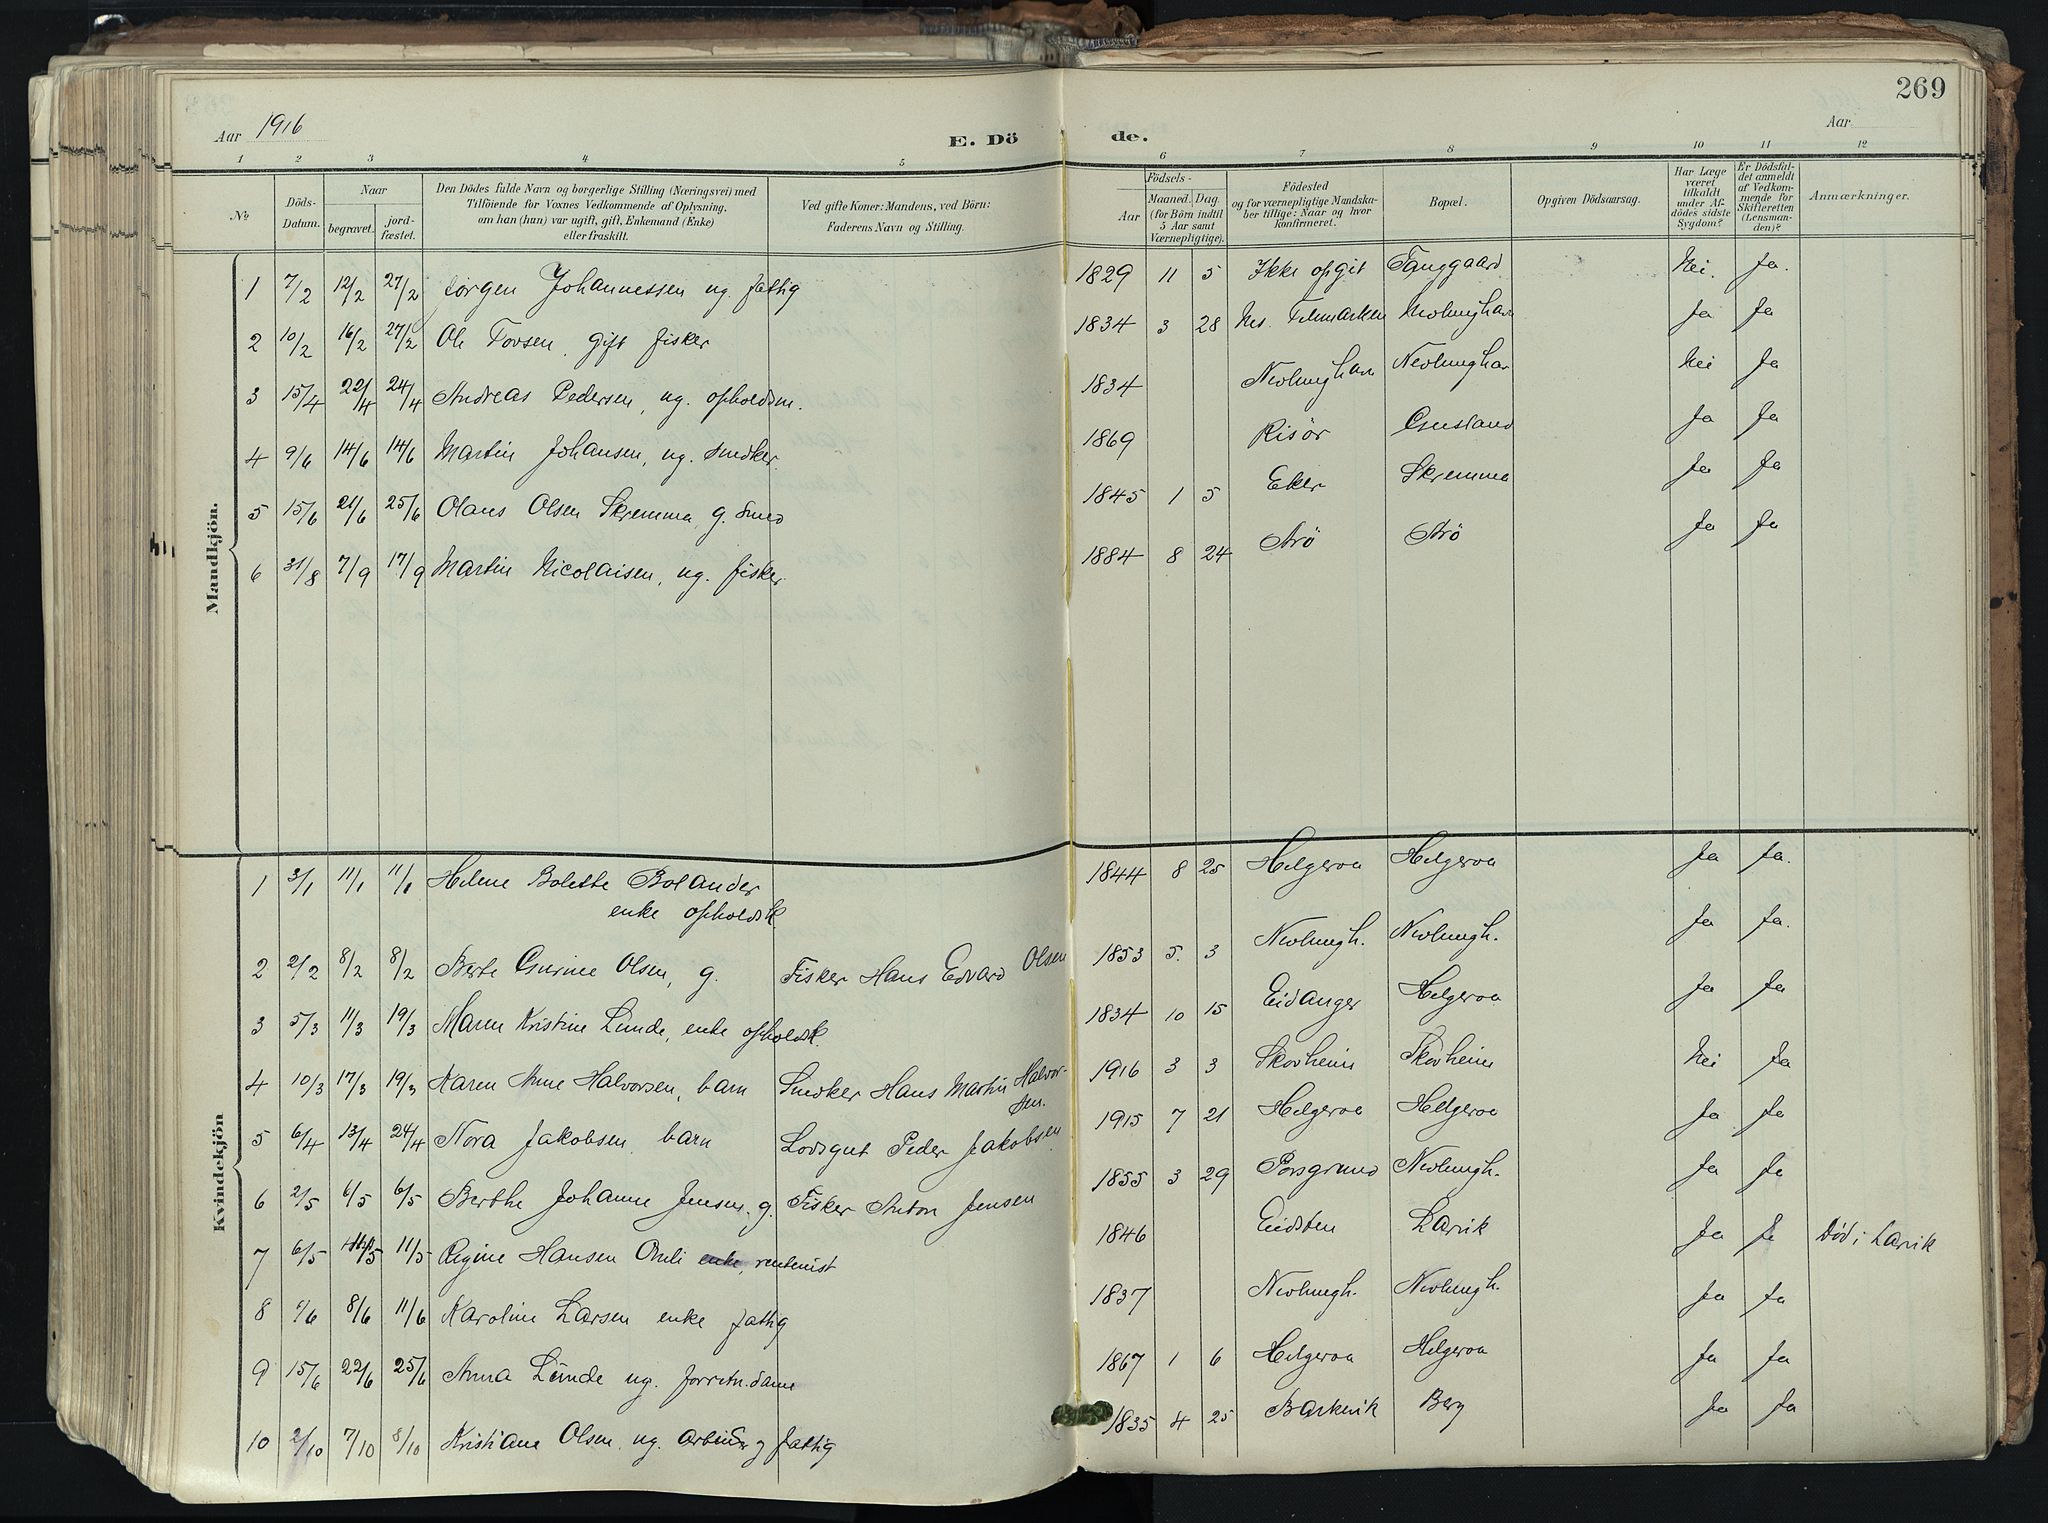 269
Aar 1916
E. Dö de.
Aar
1 2 3 4 5 6 7 8 9 10 11 12
№
Döds-Datum.
Naar
begravet.
jord-fæstet.
Den Dödes fulde Navn og borgerlige Stilling (Næringsvei) med
Tilföiende for Voxnes Vedkommende af Oplysning,
om han (hun) var ugift, gift, Enkemand (Enke)
eller fraskilt.
Ved gifte Koner: Mandens, ved Börn:
Faderens Navn og Stilling.
Födsels-
Aar
Maaned. Dag.
(for Börn indtil
5 Aar samt
Værnepligtige).
Födested
og for værnepligtige Mandska-
ber tillige: Naar og hvor
konfirmeret.
Bopæl.
Opgiven Dödsaarsag.
Har Læge
været
tilkaldt
under Af-
dödes sidste
Sygdom?
Er Dödsfal-
det anmeldt
af Vedkom-
mende for
Skifteretten
(Lensman-
den)?
Anmærkninger.
Mandkjön.
1 7/2 12/2 27/2 Jørgen Johannessen ug. fattig 1829 11 5 Ikke opgit Tanggaard Nei. Ja.
2 10/2 16/2 27/2 Ole Tovsen, gift fisker 1834 3 28 Telmarken Nevlunghavn Ja Ja
3 15/4 22/4 24/4 Andreas Pedersen, ug. opholdsm. 1834 Nevlunghavn Nevlunghav Nei Ja
4 9/6 14/6 14/6 Martin Johansen, ug. snedker 1869 Risör Gusland Ja Ja
5 15/6 21/6 25/6 Olaus Olsen Skremma, g. smed 1845 1 5 Eker Skremma Ja Ja
6 31/8 7/9 17/9 Martin Nicolaisen, ug. fisker 1884 8 24 Arö Arö Ja Ja
Kvindekjön
1 3/1 11/1 11/1 Helene Bolette Bolander
enke opholdsk. 1844 8 25 Helgeroa Helgeroa Ja Ja.
2 2/2 8/2 8/2 Berte Gurine Olsen, g. Fisker Hans Edvard Olsen 1853 5. 3 Nevlungh. Nevlungh. Ja Ja.
3 5/3 11/3 19/3 Maren Kristine Lunde, enke opholdsk. 1834 10 15 Eidanger Helgeroa Ja Ja
4 10/3 17/3 19/3 Karen Anne Halvorsen, barn Snedker Hans Martin Halvor-
sen. 1916 3 3 Skovheim Skovheim Nei Ja
5 6/4 13/4 24/4 Nora Jakobsen, barn Lodsgut Peder Jakobsen 1915 7 21 Helgeroa Helgeroa Ja Ja
6 2/5 6/5 6/5 Berthe Johanne Jensen. g. Fisker Anton Jensen 1855 3 29 Porsgrund Nevlungh. Ja Ja
7 6/5 11/5 11/5 Regine Hansen Omli enke, rentenist 1846 Eidsten Larvik Ja Ja Död i Larvik
8 1/6 8/6 11/6 Karoline Larsen enke fattig 1837 Nevlungh. Nevlungh. Ja Ja
9 15/6 22/6 25/6 Anna Lunde ug. forretn.dame 1867 1 6 Helgeroa Helgeroa Ja Ja
10 2/10 7/10 8/10 Kristiane Olsen, ug. fattig 1835 4 25 Barkevik Berg Ja Ja